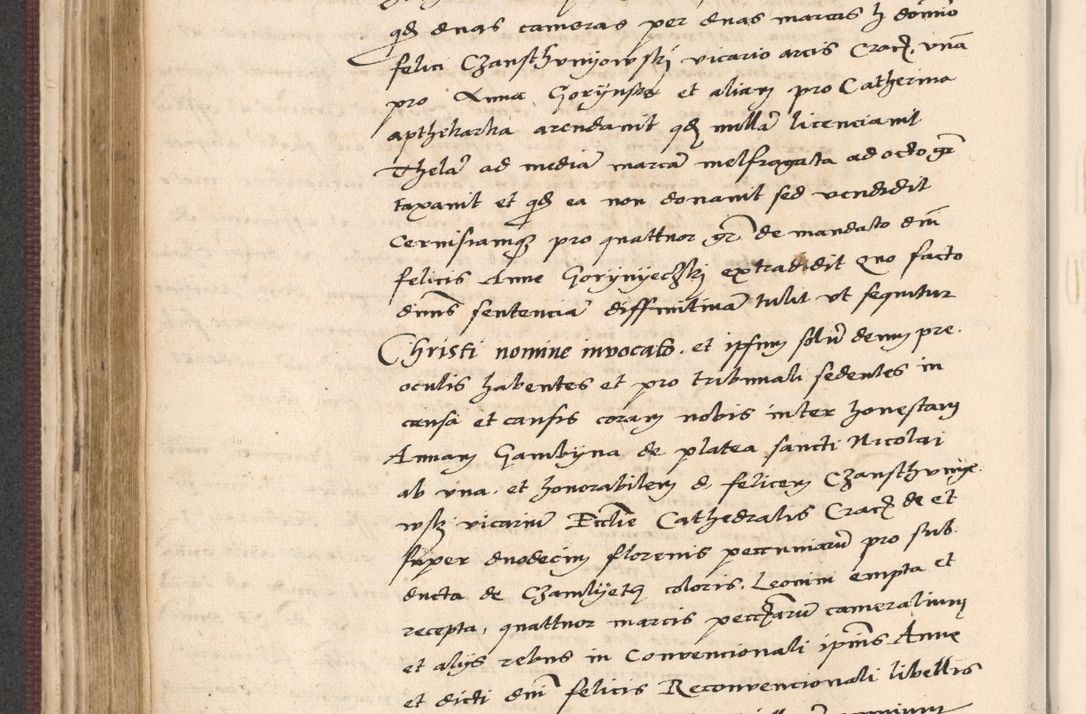 qd duas cameras per duas marcas h domino
felici Czansthunyowski vicario arcis Crac, una
pro Anna Gorynska et aliam pro Catherina
apthekarka arendavit qd nullã licenciavit
Thelã ad mediã marcã melfragata ad octo gr
taxavit et qd ea non donavit sed vendidit
Cernisiamq pro quattuor gr de mandato dni
felicis Anne Gorynyeczki extradidit Quo facto
dnus sentenciã diffinitivã tulit ut sequitur
Christi nomine invocato, et ipsum solũ deum pre
oculis habentes et pro tribunali sedentes in
causa et causis coram nobis inter honestam
Annam Gambyna de platea sancti Nicolai
ab una, et honorabilem d, felicem Czansthuny
wsky vicariũ Ecclie Cathedralis Crac de et
super duodecim florenis pecuniarũ pro sub
ducta de Czamlyetq coloris, Leonini empta et
recepta, quattuor marcis pecciarũ cameralium
et alijs rebus in Convencionali ipius Anne
et dicti dni felicis Reconvencionali libellis